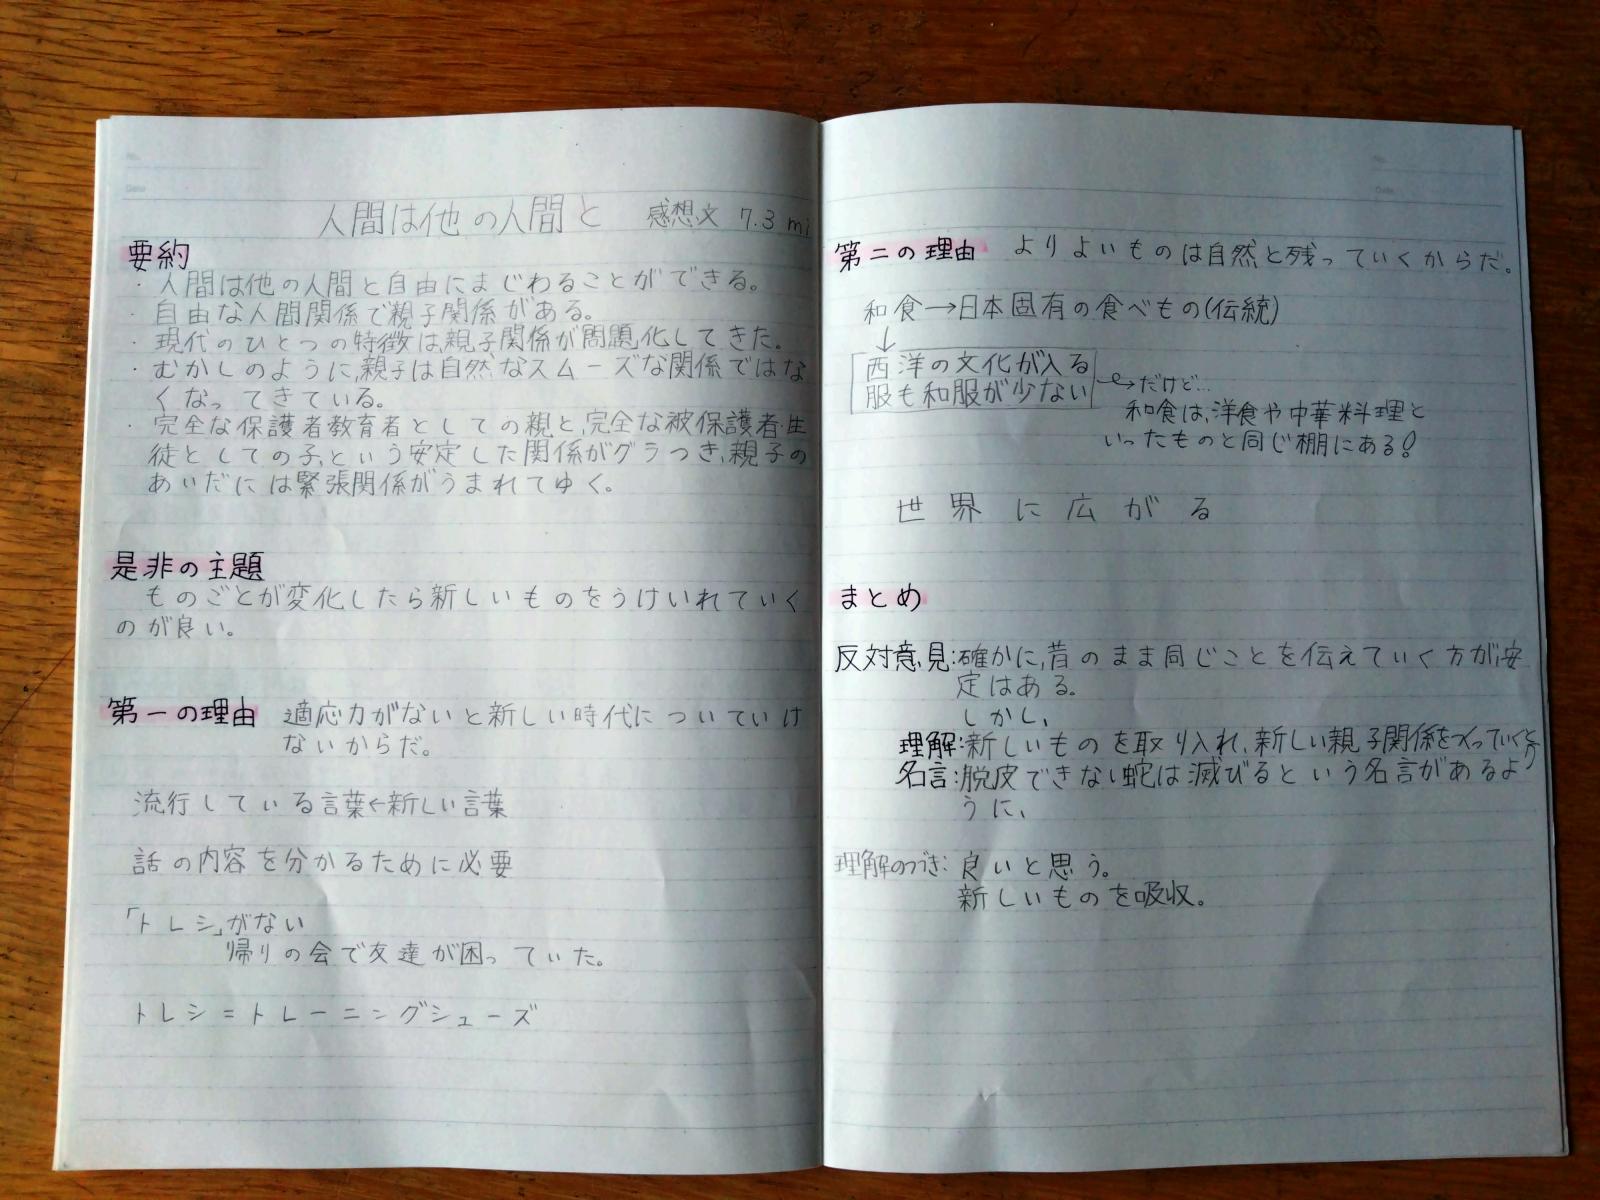 人間は他の人間と 感想文 7.3 mi
要約
・人間は他の人間と自由にまじわることができる。
・自由な人間関係で親子関係がある。
・現代のひとつの特徴は、親子関係が問題化してきた。
・むかしのように、親子は自然なスムーズな関係ではな
くなってきている。
・完全な保護者教育者としての親と、完全な被保護者・生
徒としての子、という安定した関係がグラつき、親子の
あいだには緊張関係がうまれてゆく。
是非の主題
ものごとが変化したら新しいものをうけいれていく
のが良い。
第一の理由 適応力がないと新しい時代についていけ
ないからだ。
流行している言葉←新しい言葉
話の内容を分かるために必要
「トレシ」がない
帰りの会で友達が困っていた。
トレシ=トレーニングシューズ
第二の理由 よりよいものは自然と残っていくからだ。
和食→日本固有の食べもの(伝統)
↓
西洋の文化が入る
服も和服が少ない
→だけど…
和食は、洋食や中華料理と
いったものと同じ棚にある!
世界に広がる
まとめ
反対意見:確かに、昔のまま同じことを伝えていく方が、安
定はある。
しかし、
理解:新しいものを取り入れ、新しい親子関係をつくっていくと
名言:脱皮できない蛇は滅びるという名言があるよ
うに、
理解のつづき:良いと思う。
新しいものを吸収。